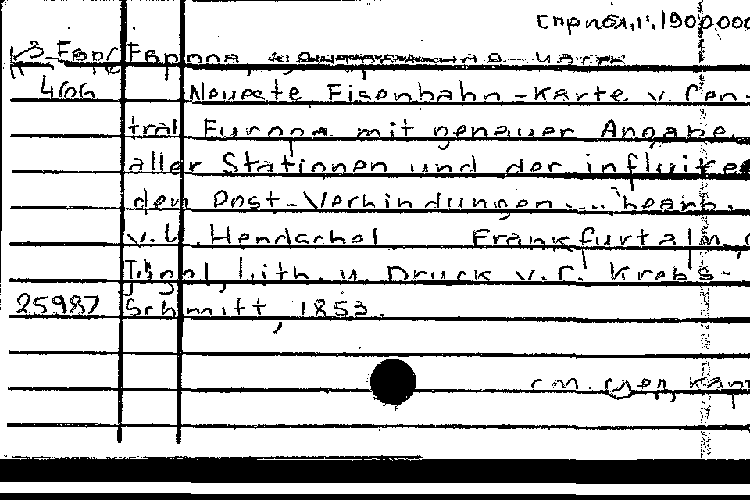 Справ., 1:1900000
К3-Евр Европа,
466 Neueste Eisenbahn-Karte v. Cen-
tral Europa mit genauer Angabe
aller Stationen und der influire
den Post-Verbindungen... bearb.
v. U. Hendschel Frankfurt a/m,
Jügel, Lith. u. Druck v. C. Krebs-
25987 Schmitt, 1853.
см. след. карт